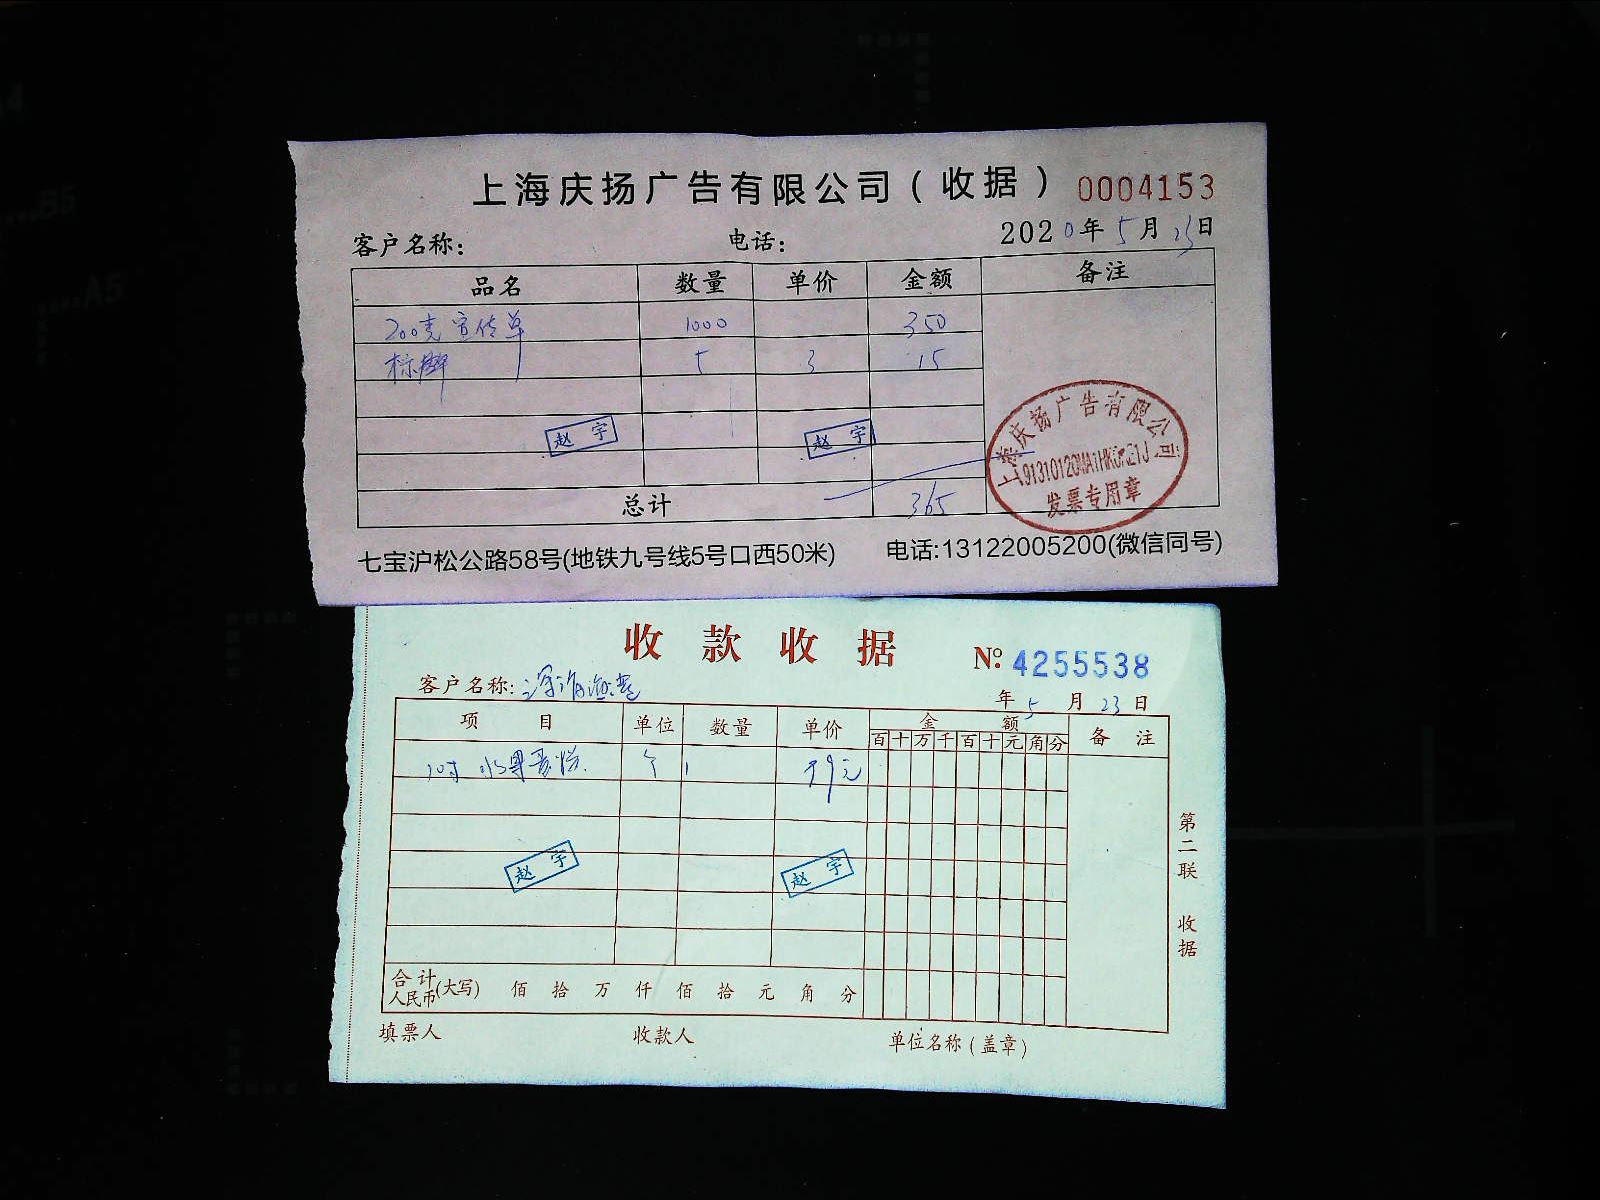 上海庆扬广告有限公司（收据） 0004153
客户名称： 电话： 2020年5月23日
品名 数量 单价 金额 备注
200克宣传单 1000 350
标牌 5 3 15
赵宇 赵宇
上海庆扬广告有限公司
发票专用章
总计 365
七宝沪松公路58号(地铁九号线5号口西50米) 电话:13122005200(微信同号)
收款收据 №: 4255538
客户名称: 深海渔湾
年5月23日
项目 单位 数量 单价 金额 备注
百十万千百十元角分
10寸水果蛋糕 个 1 79元
赵宇 赵宇
第二联 收据
合计人民币(大写) 佰 拾 万 仟 佰 拾 元 角 分
填票人 收款人 单位名称(盖章)